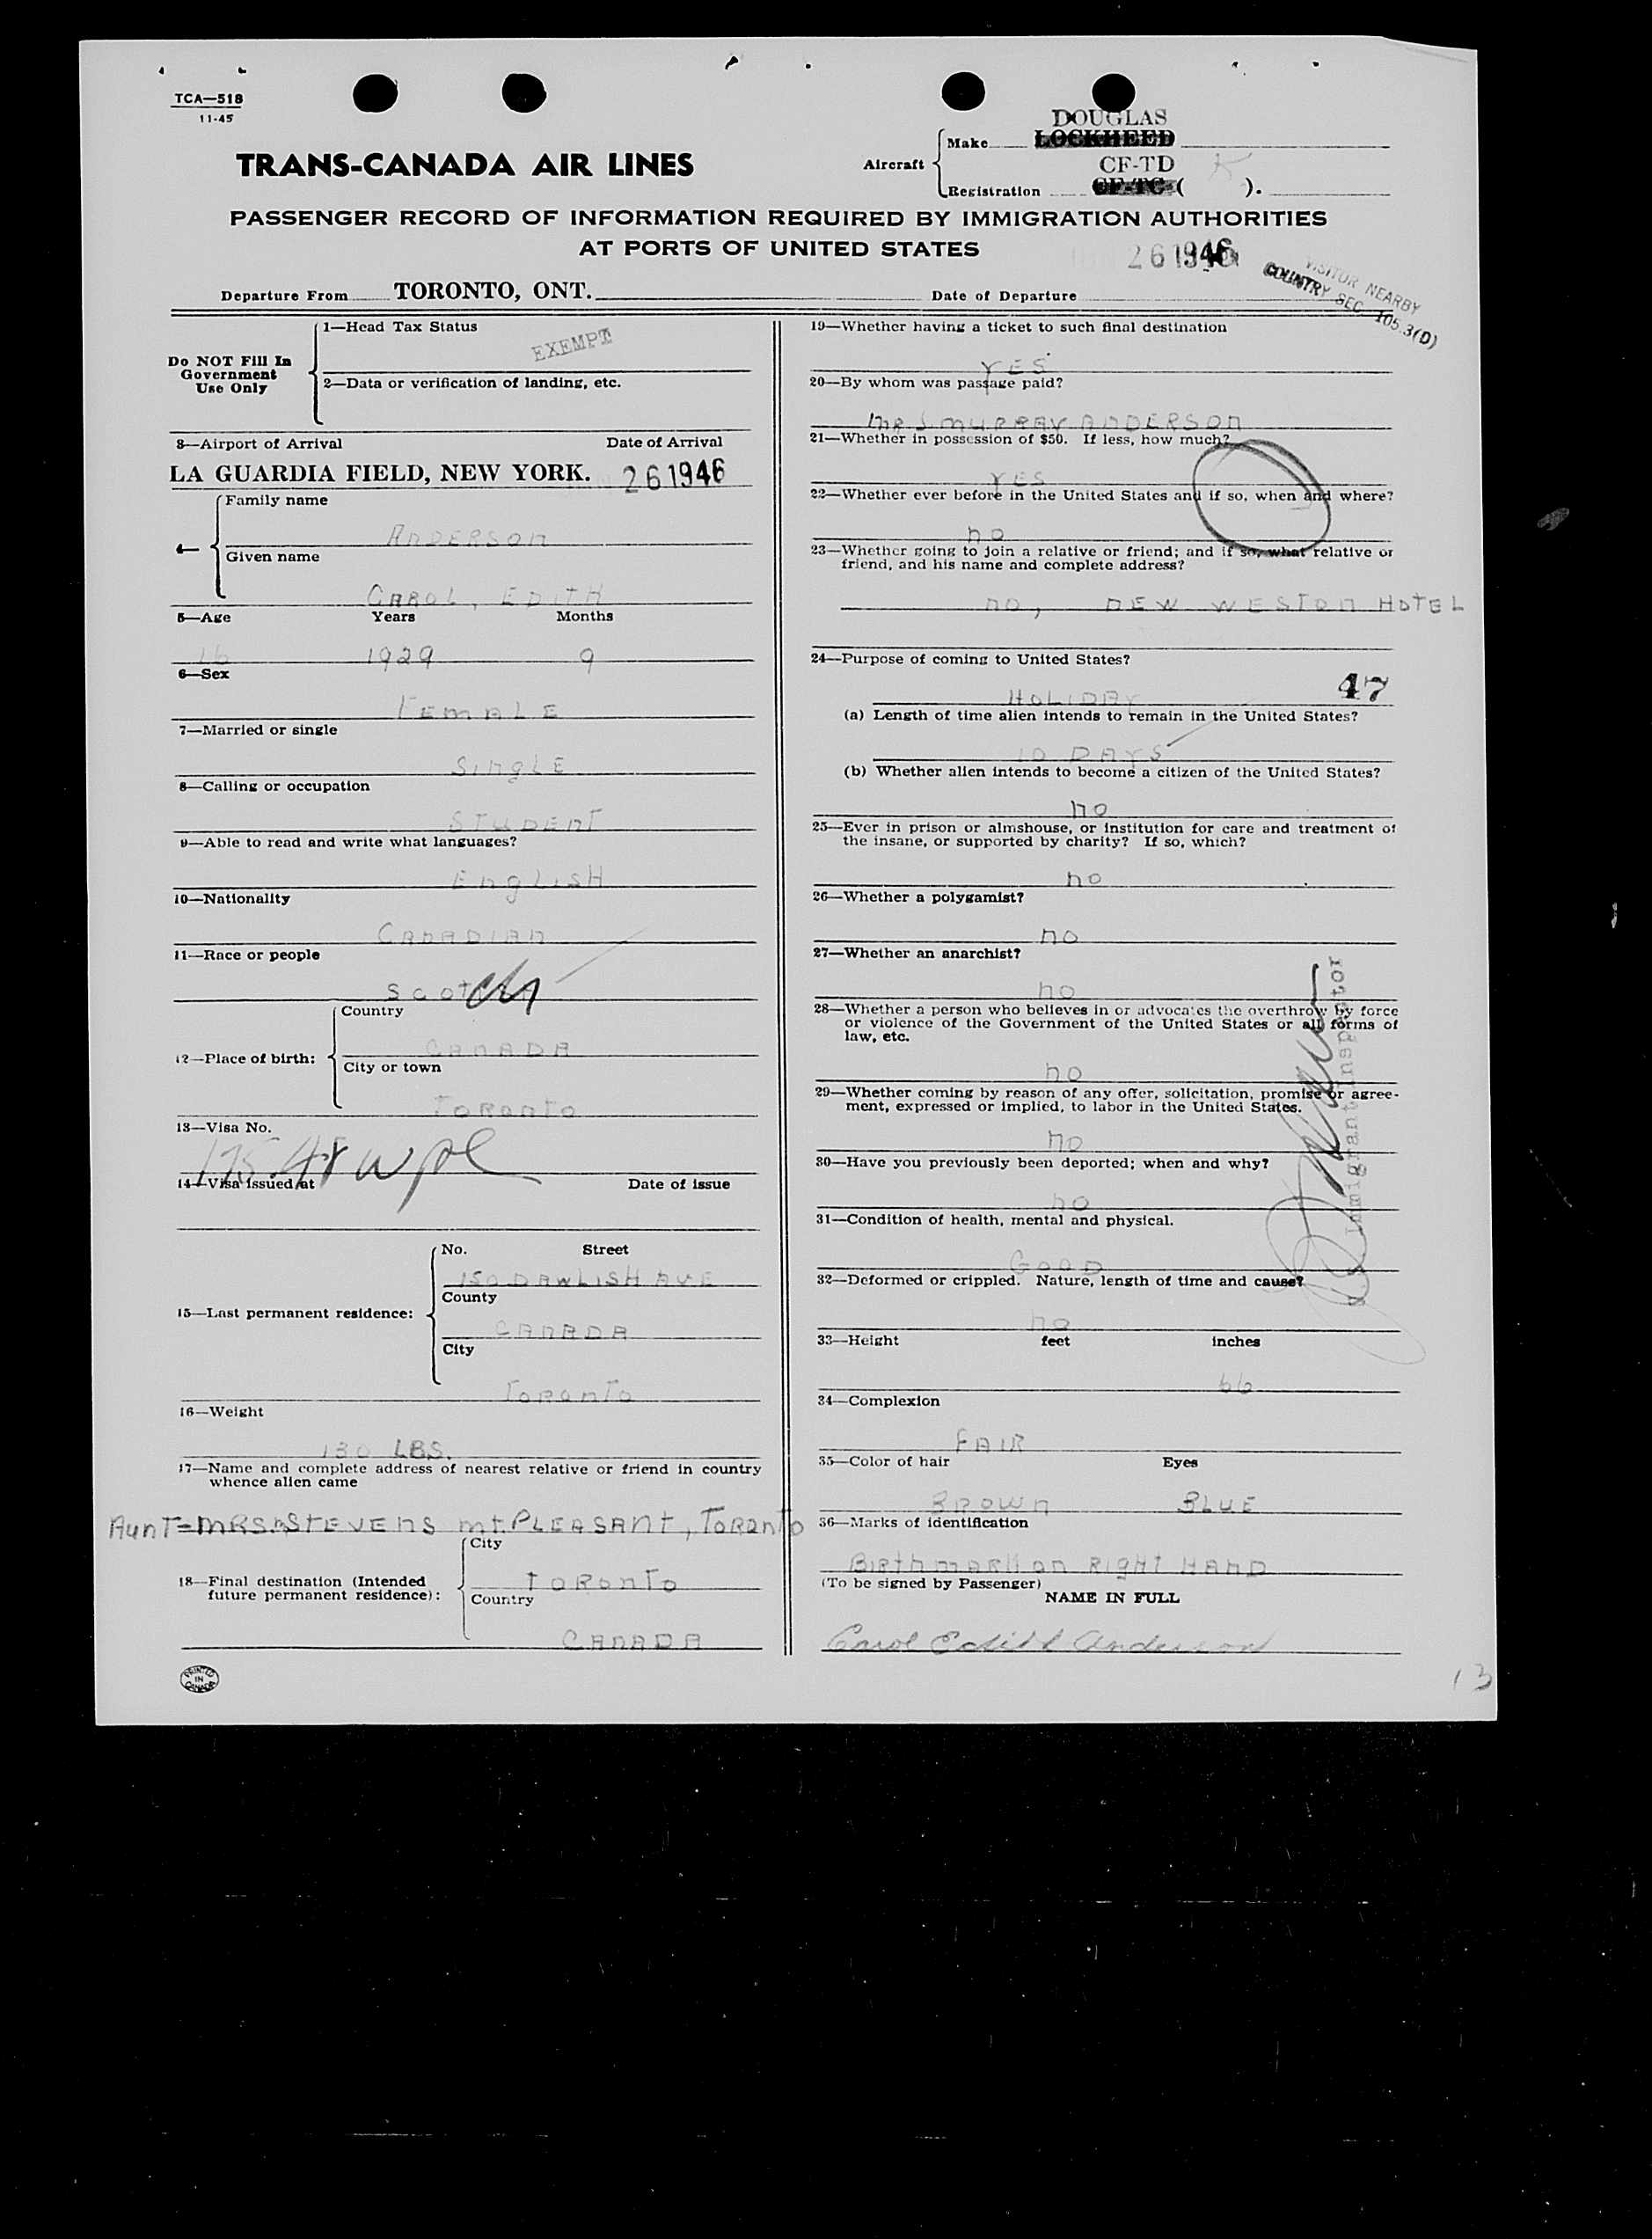 TCA—518
11-45
DOUGLAS
Make LOCKHEED
TRANS-CANADA AIR LINES
Aircraft
CF-TD K
Registration CF-TC ( ).
PASSENGER RECORD OF INFORMATION REQUIRED BY IMMIGRATION AUTHORITIES
AT PORTS OF UNITED STATES
26 1946
VISITOR NEARBY
COUNTRY SEC 105.3(D)
Departure From TORONTO, ONT.
Date of Departure
Do NOT Fill In
Government
Use Only
1—Head Tax Status
EXEMPT
2—Data or verification of landing, etc.
3—Airport of Arrival Date of Arrival
LA GUARDIA FIELD, NEW YORK. 26 1946
4—
Family name
ANDERSON
Given name
CAROL, EDITH
5—Age Years Months
16 1929 9
6—Sex
FEMALE
7—Married or single
SINGLE
8—Calling or occupation
STUDENT
9—Able to read and write what languages?
ENGLISH
10—Nationality
CANADIAN
11—Race or people
SCOTCH
12—Place of birth:
Country
CANADA
City or town
TORONTO
13—Visa No.
14—Visa issued at Date of issue
15—Last permanent residence:
No. Street
150 DAWLISH AVE
County
CANADA
City
TORONTO
16—Weight
130 LBS.
17—Name and complete address of nearest relative or friend in country
whence alien came
AUNT=MRS. STEVENS MT. PLEASANT, TORONTO
18—Final destination (Intended
future permanent residence):
City
TORONTO
Country
CANADA
PRINTED
IN
CANADA
19—Whether having a ticket to such final destination
YES
20—By whom was passage paid?
MR J. MURRAY ANDERSON
21—Whether in possession of $50. If less, how much?
YES
22—Whether ever before in the United States and if so, when and where?
NO
23—Whether going to join a relative or friend; and if so, what relative or
friend, and his name and complete address?
NO, NEW WESTON HOTEL
24—Purpose of coming to United States?
HOLIDAY 47
(a) Length of time alien intends to remain in the United States?
10 DAYS
(b) Whether alien intends to become a citizen of the United States?
NO
25—Ever in prison or almshouse, or institution for care and treatment of
the insane, or supported by charity? If so, which?
NO
26—Whether a polygamist?
NO
27—Whether an anarchist?
NO
28—Whether a person who believes in or advocates the overthrow by force
or violence of the Government of the United States or all forms of
law, etc.
NO
29—Whether coming by reason of any offer, solicitation, promise or agree-
ment, expressed or implied, to labor in the United States.
NO
30—Have you previously been deported; when and why?
NO
31—Condition of health, mental and physical.
GOOD
32—Deformed or crippled. Nature, length of time and cause?
NO
U.S. Immigrant Inspector
33—Height feet inches
66
34—Complexion
FAIR
35—Color of hair Eyes
BROWN BLUE
36—Marks of identification
BIRTHMARK ON RIGHT HAND
(To be signed by Passenger)
NAME IN FULL
Carol Edith Anderson
13